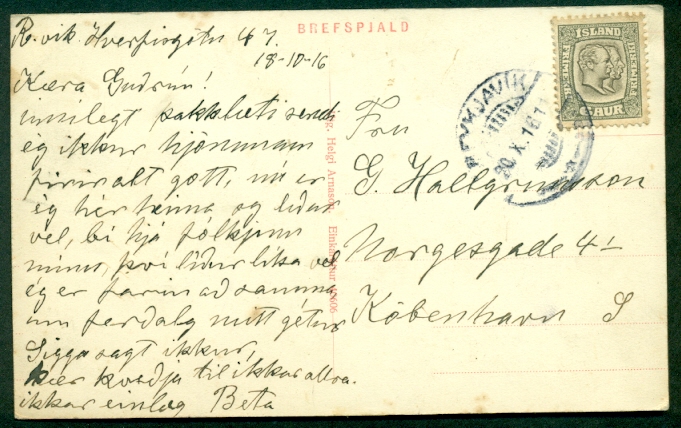 BREFSPJALD
R.vik. Hverfisgötu 47.
18-10-16
Kæra Gudrún!
innilegt þakklæti sendi
ég ikkur hjónunum
firir alt gott, nú er
ég hér heima og lídur
vel, bí hjá fólkjinu
mínu, því lídur líka vel
ég er farin ad sauma
um ferdalag mitt getur
Sigga sagt ikkur,
kær kvedja til ikkar allra.
ikkar einlæg Beta
Helgi Árnason. Einkasali
ÍSLAND
FRIMERKI
6 AUR
REYKJAVIK
20.X.16
Fru
G. Hallgrimsson
Norgesgade 41
Köbenhavn S